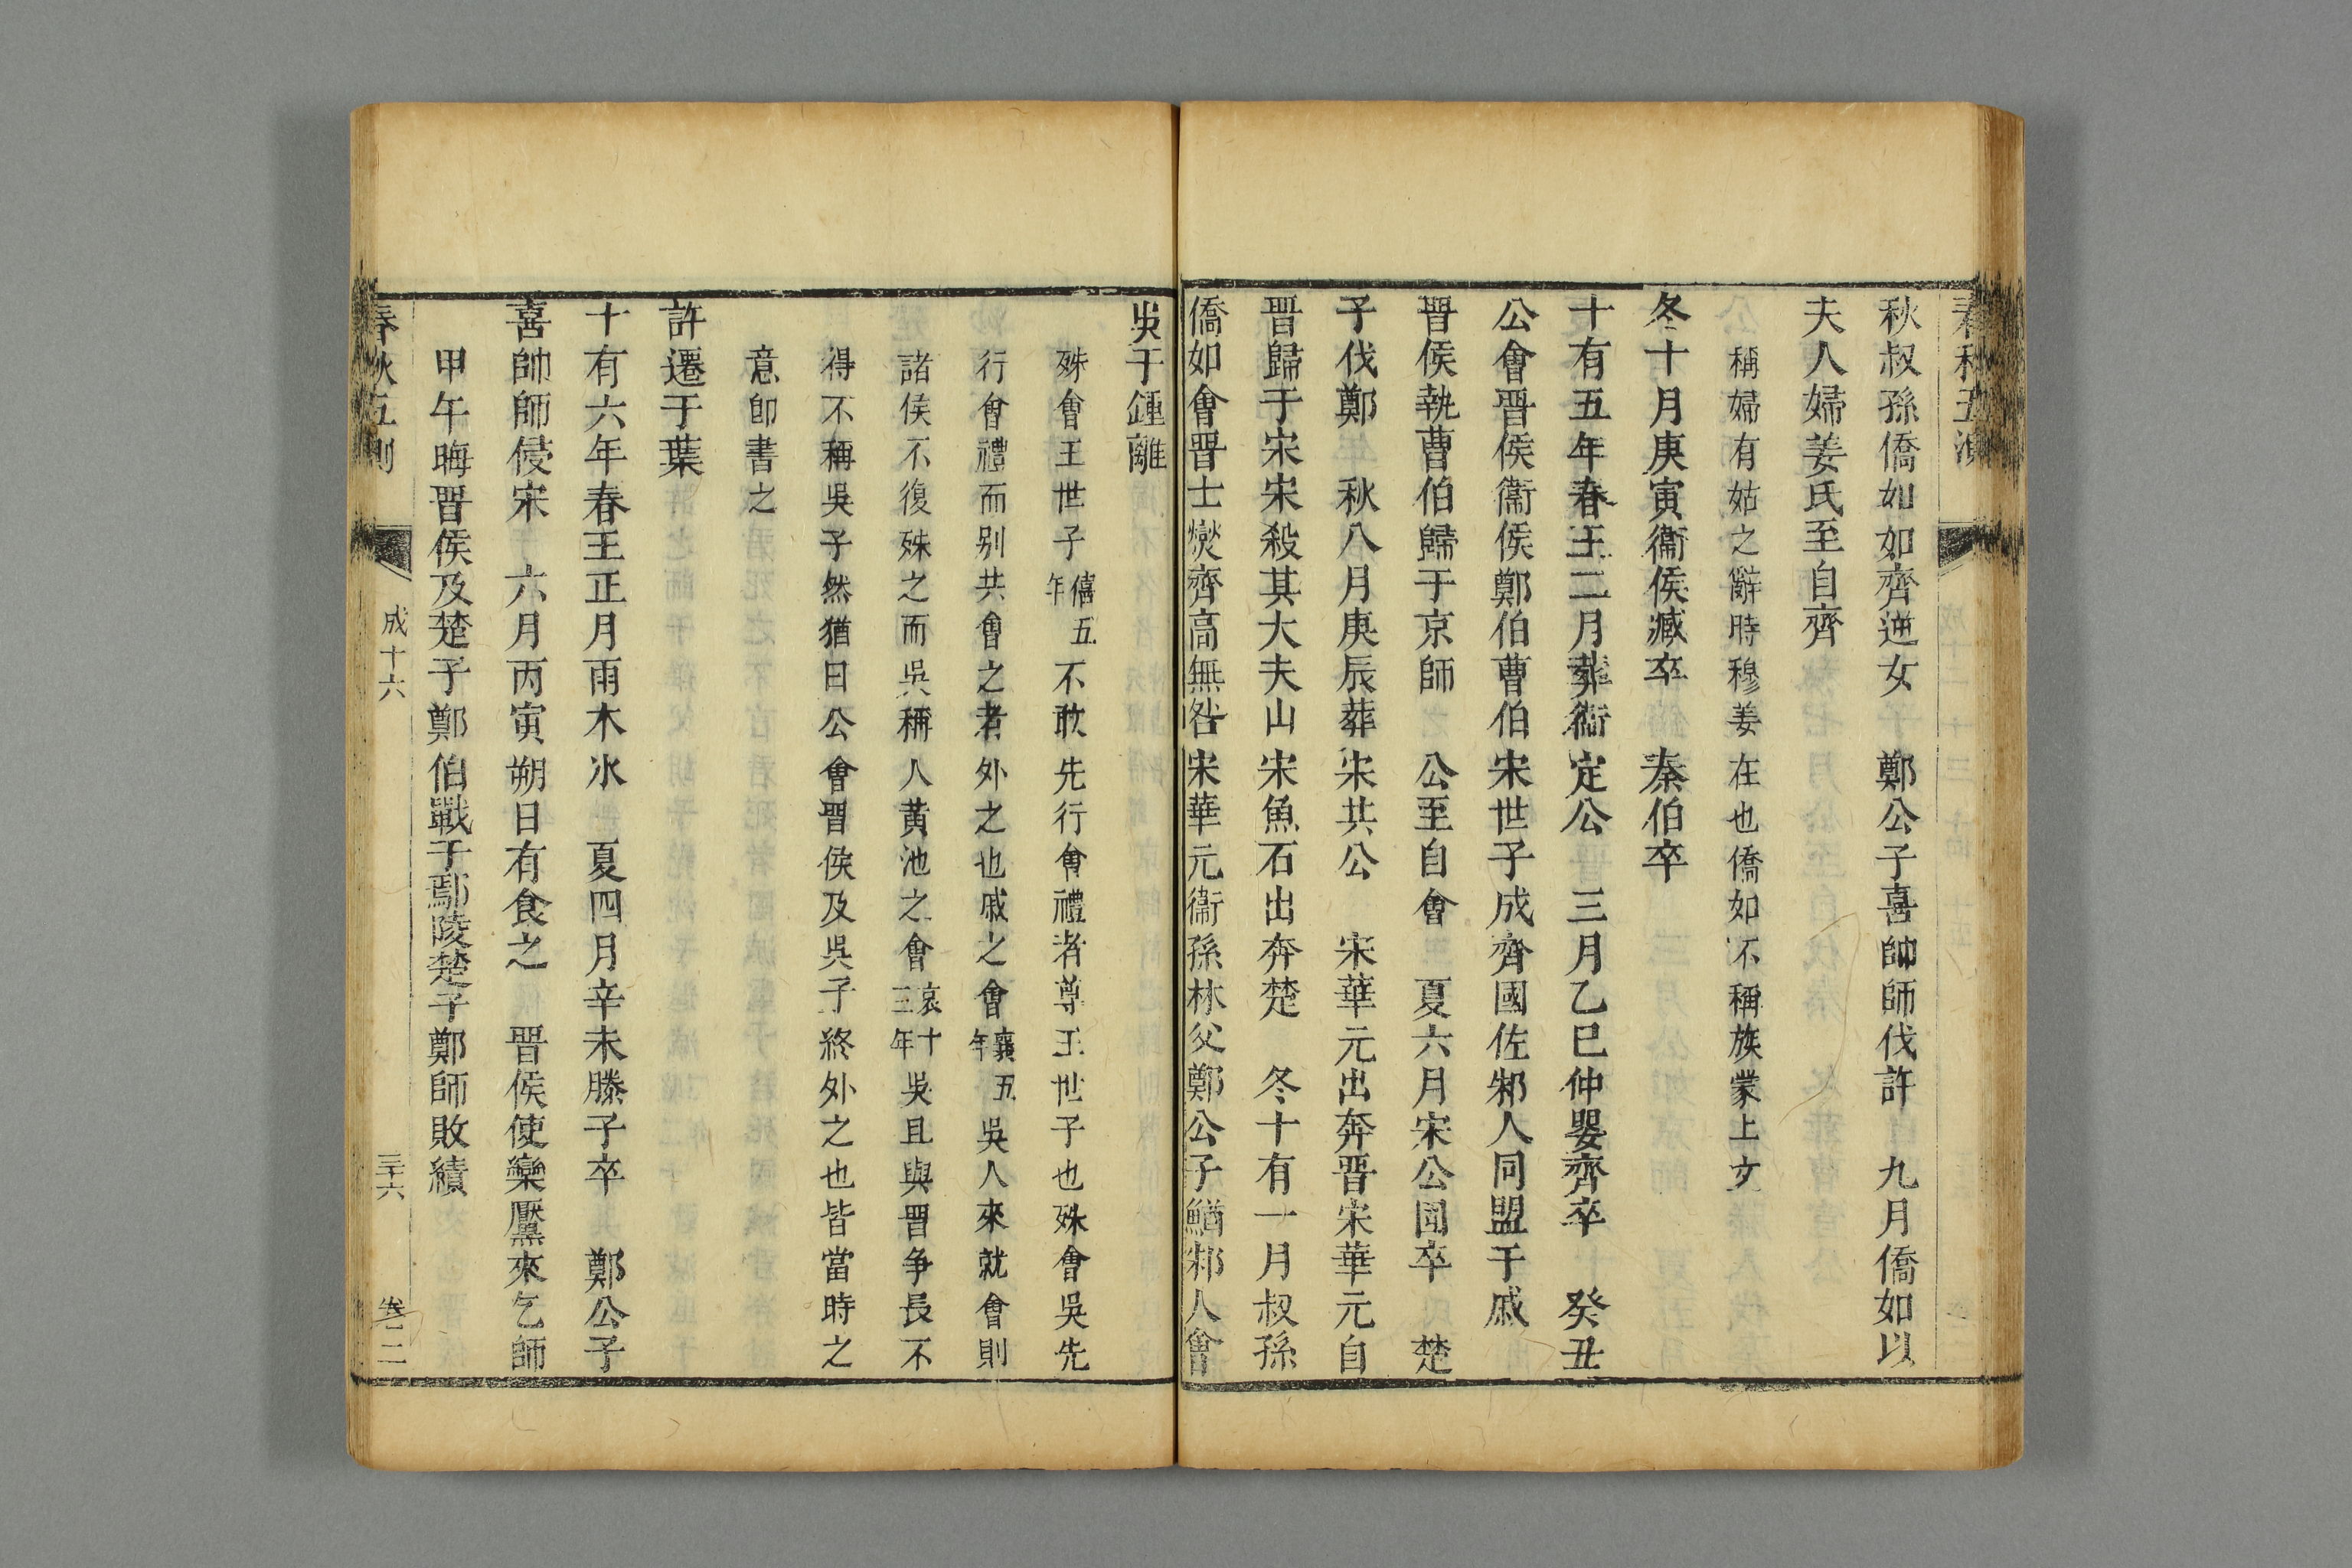 秋叔孫僑如如齊逆女　鄭公子喜帥師伐許　九月僑如以
夫人婦姜氏至自齊
稱婦有姑之辭時穆姜在也僑如不稱族蒙上文
冬十月庚寅衞侯臧卒　秦伯卒
十有五年春王二月葬衞定公　三月乙巳仲嬰齊卒　癸丑
公會晉侯衞侯鄭伯曹伯宋世子成齊國佐邾人同盟于戚
晉侯執曹伯歸于京師　公至自會　夏六月宋公固卒　楚
子伐鄭　秋八月庚辰葬宋共公　宋華元出奔晉宋華元自
晉歸于宋宋殺其大夫山宋魚石出奔楚　冬十有一月叔孫
僑如會晉士燮齊高無咎宋華元衞孫林父鄭公子鰌邾人會
吳于鍾離
殊會王世子僖五年不敢先行會禮者尊王世子也殊會吳先
行會禮而别共會之者外之也戚之會襄五年吳人來就會則
諸侯不復殊之而吳稱人黃池之會哀十三年吳且與晉争長不
得不稱吳子然猶曰公會晉侯及吳子終外之也皆當時之
意卽書之
許遷于葉
十有六年春王正月雨木冰　夏四月辛未滕子卒　鄭公子
喜帥師侵宋　六月丙寅朔日有食之　晉侯使欒黶來乞師
甲午晦晉侯及楚子鄭伯戰于鄢陵楚子鄭師敗績
成十六
三十六
卷二